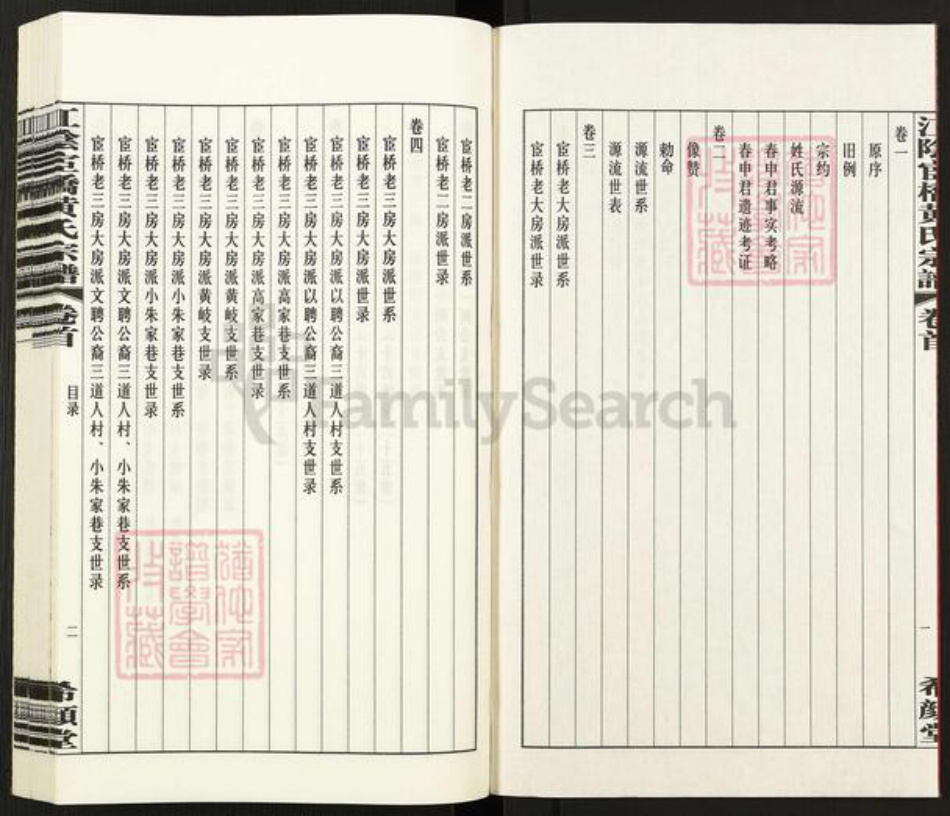 江阴宦桥黄氏宗谱 卷首
一
希颜堂
卷一
原序
旧例
宗约
姓氏源流
春申君事实考略
春申君遗迹考证
卷二
像赞
勅命
源流世系
源流世表
卷三
宦桥老大房派世系
宦桥老大房派世录
宦桥老二房派世系
宦桥老二房派世录
卷四
宦桥老三房大房派世系
宦桥老三房大房派世录
宦桥老三房大房派以聘公裔三道人村支世系
宦桥老三房大房派以聘公裔三道人村支世录
宦桥老三房大房派高家巷支世系
宦桥老三房大房派高家巷支世录
宦桥老三房大房派黄岐支世系
宦桥老三房大房派黄岐支世录
宦桥老三房大房派小朱家巷支世系
宦桥老三房大房派小朱家巷支世录
宦桥老三房大房派文聘公裔三道人村、小朱家巷支世系
宦桥老三房大房派文聘公裔三道人村、小朱家巷支世录
江阴宦桥黄氏宗谱 卷首
目录
二
希颜堂
FamilySearch